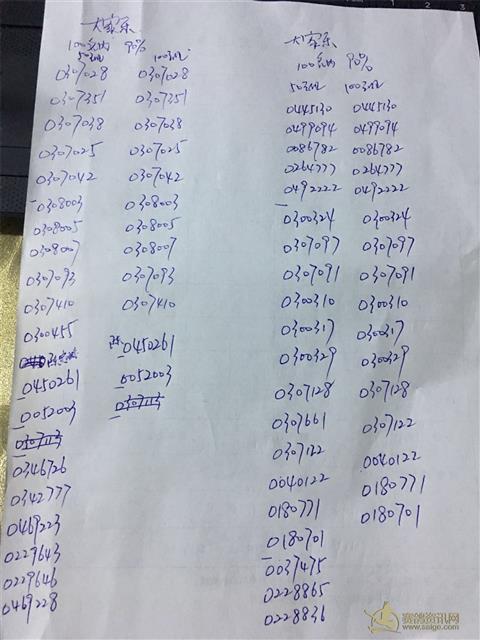 大家乐
100名内 90%
50名 100名
0307028 0307028
0307351 0307351
0307038 0307038
0307025 0307025
0307042 0307042
0308003 0308003
0308005 0308005
0308007 0308007
0307093 0307093
0307410 0307410
0300455
0450261 0450261
0052003 0052003
0307113 0307113
0346726
0342777
0469223
0229643
0229646
0469228
大家乐
100名内 90%
50名 100名
0445130 0445130
0499094 0499094
0086782 0086782
0264777 0264777
0492222 0492222
0300324 0300324
0307097 0307097
0307091 0307091
0300310 0300310
0300317 0300317
0300329 0300329
0307128 0307128
0307661 0307122
0307122 0040122
0040122 0180771
0180771 0180701
0180701
0037475
0228865
0228836
赛鸽资讯网
www.saige.com